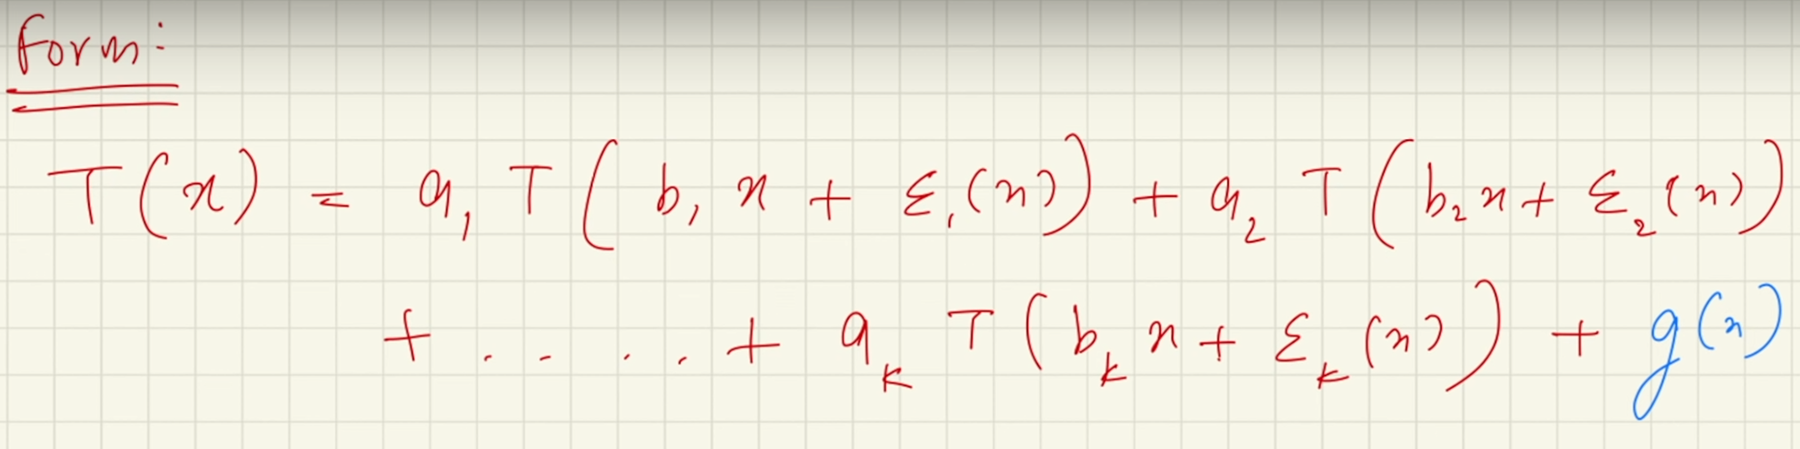 Form:
T(x) = a₁ T(b₁ x + ε₁(x)) + a₂ T(b₂ x + ε₂(x))
+ . . . . + a_k T(b_k x + ε_k(x)) + g(x)